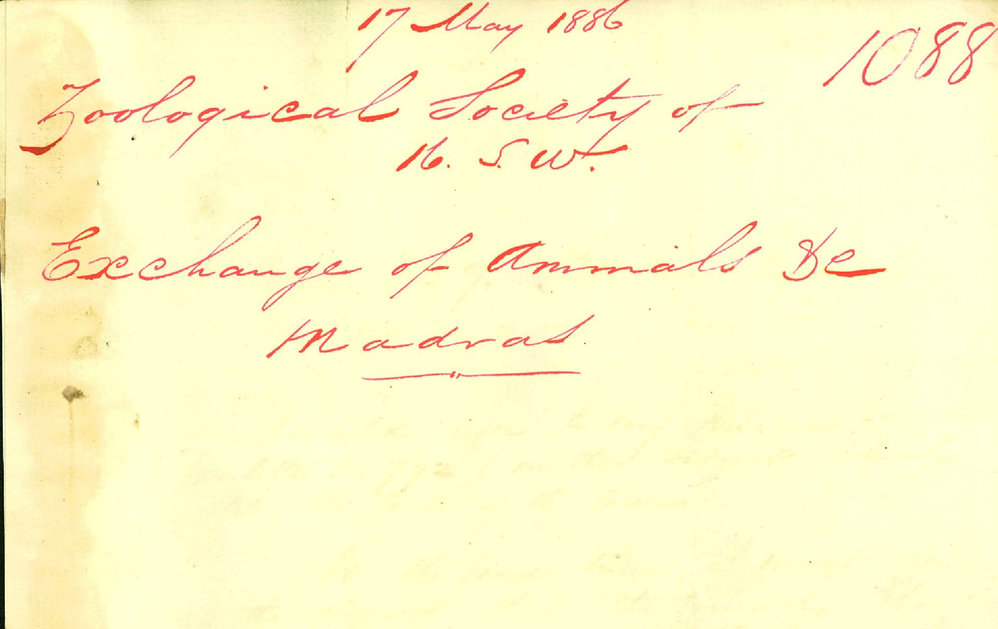 17 May 1886
1088
Zoological Society of
N. S. W.
Exchange of Animals &c
Madras